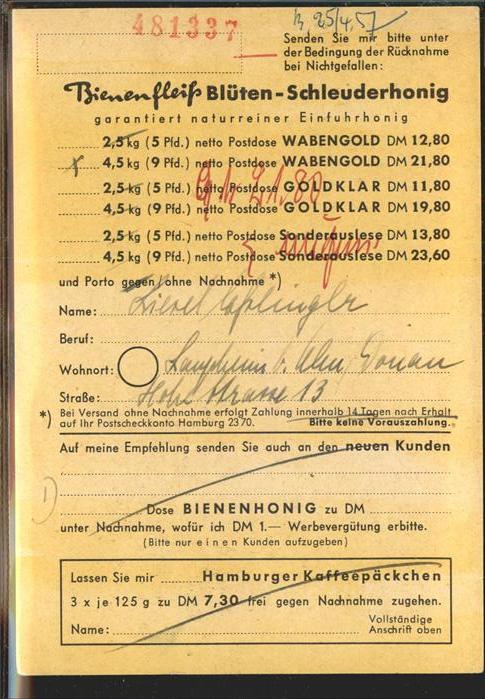 481337
25/4.57
Senden Sie mir bitte unter
der Bedingung der Rücknahme
bei Nichtgefallen:
Bienenfleiß Blüten-Schleuderhonig
garantiert naturreiner Einfuhrhonig
2,5 kg (5 Pfd.) netto Postdose WABENGOLD DM 12,80
x 4,5 kg (9 Pfd.) netto Postdose WABENGOLD DM 21,80
21.80
2,5 kg (5 Pfd.) netto Postdose GOLDKLAR DM 11,80
4,5 kg (9 Pfd.) netto Postdose GOLDKLAR DM 19,80
2,5 kg (5 Pfd.) netto Postdose Sonderauslese DM 13,80
4,5 kg (9 Pfd.) netto Postdose Sonderauslese DM 23,60
und Porto gegen/ohne Nachnahme *)
Name:
Beruf:
Wohnort: Laupheim b. Ulm Donau
Straße: Strasse 13
*) Bei Versand ohne Nachnahme erfolgt Zahlung innerhalb 14 Tagen nach Erhalt
auf Ihr Postscheckkonto Hamburg 2370. Bitte keine Vorauszahlung.
Auf meine Empfehlung senden Sie auch an den neuen Kunden
1)
Dose BIENENHONIG zu DM
unter Nachnahme, wofür ich DM 1.— Werbevergütung erbitte.
(Bitte nur einen Kunden aufzugeben)
Lassen Sie mir Hamburger Kaffeepäckchen
3 x je 125 g zu DM 7,30 frei gegen Nachnahme zugehen.
Name: Vollständige
Anschrift oben